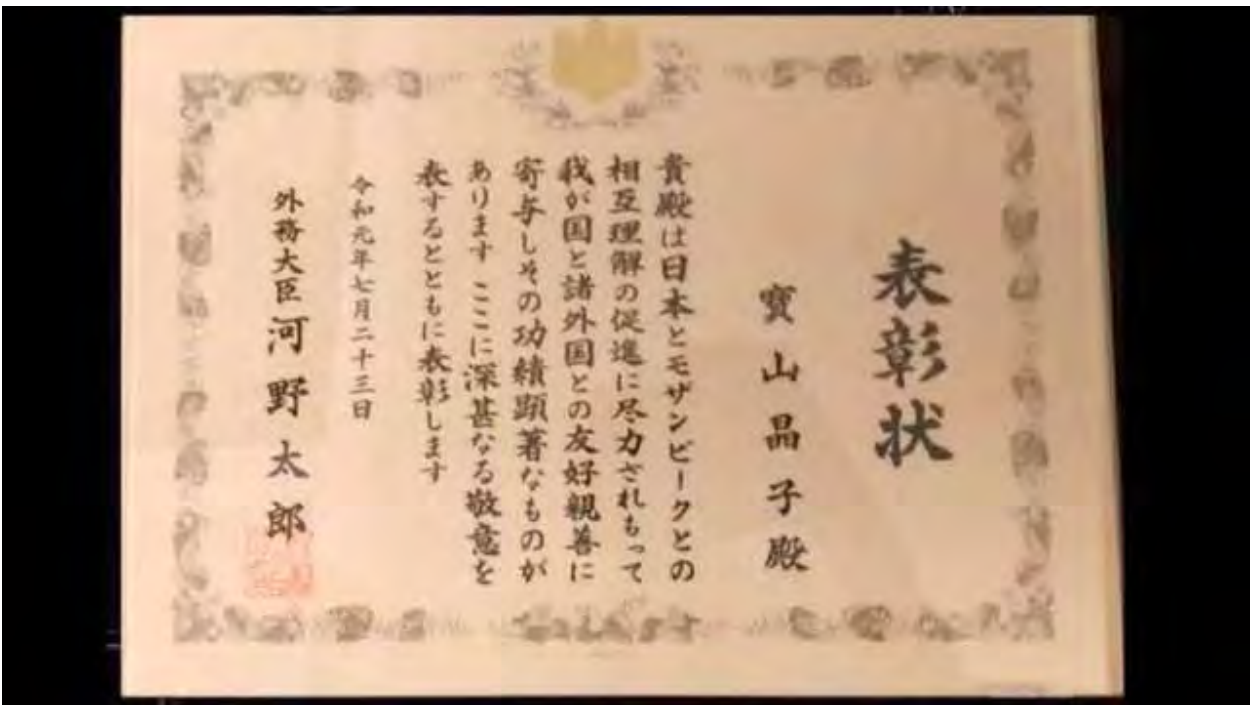 表彰状
寳山晶子殿
貴殿は日本とモザンビークとの
相互理解の促進に尽力されもって
我が国と諸外国との友好親善に
寄与しその功績顕著なものが
あります ここに深甚なる敬意を
表するとともに表彰します
令和元年七月二十三日
外務大臣 河野太郎